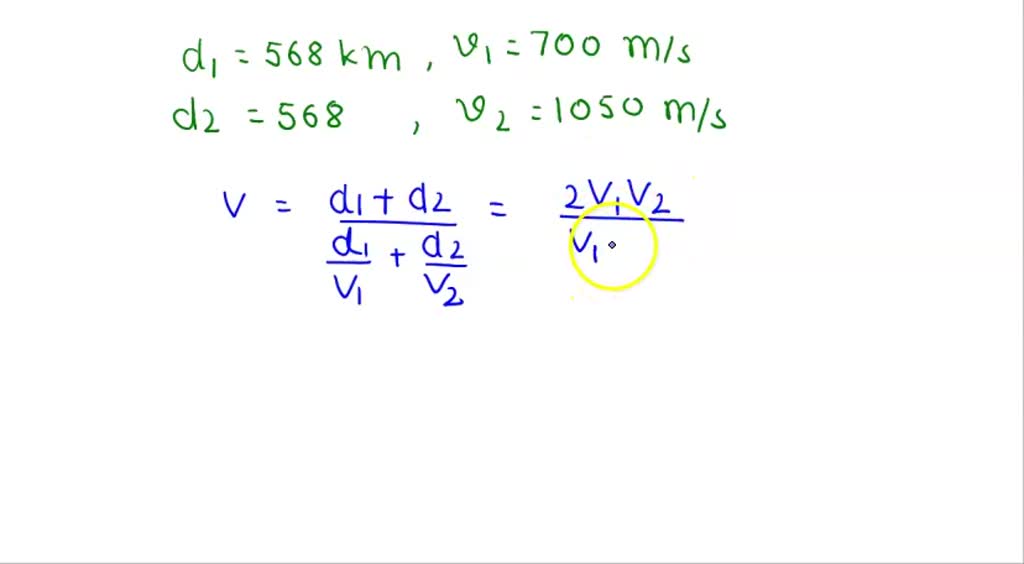 d1 = 568 km , v1 = 700 m/s
d2 = 568 , v2 = 1050 m/s
V = (d1 + d2) / (d1/V1 + d2/V2) = 2V1V2 / V1